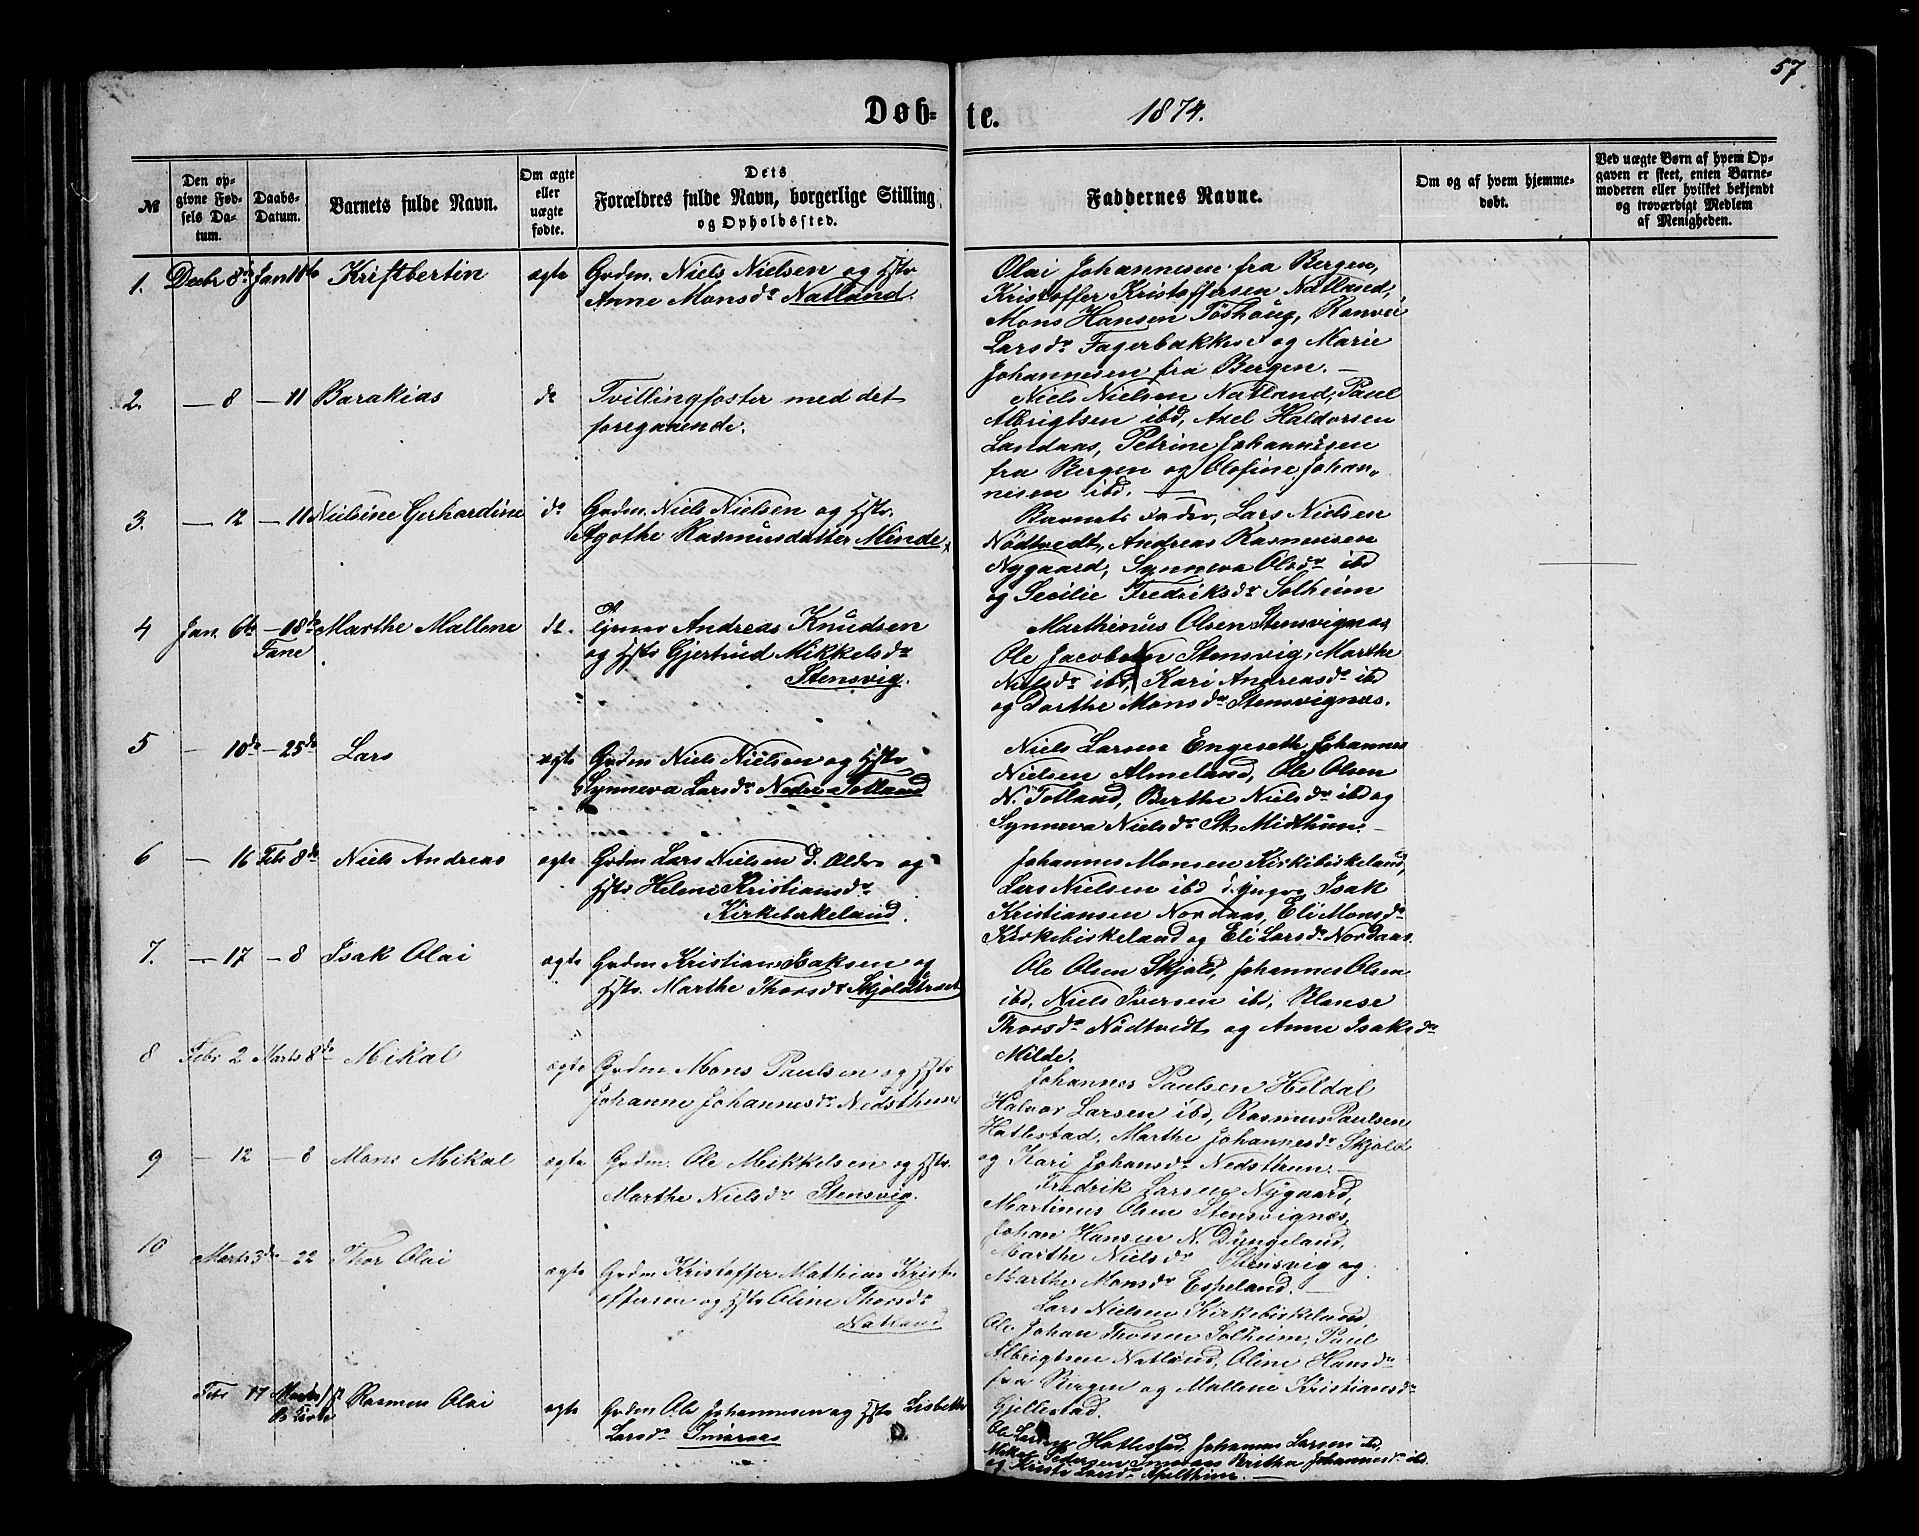 57
Døb-
te.
1874.
№
Den op-
givne Fød-
sels Da-
tum.
Daabs-
Datum.
Barnets fulde Navn.
Om ægte
eller
uægte
fødte.
Dets
Forældres fulde Navn, borgerlige Stilling
og Opholdssted.
Faddernes Navne.
Om og af hvem hjemme-
døbt.
Ved uægte Børn af hvem Op-
gaven er skeet, enten Barne-
moderen eller hvilket bekjendt
og troværdigt Medlem
af Menigheden.
1. Decbr 8de Jan 11te Kristbertin ægte Grdm. Niels Nielsen og Hstr
Anne Monsdr Natland.
Olai Johannesen fra Bergen,
Kristoffer Kristoffersen Natland,
Mons Hansen Toshoug, Ranvei
Larsdr Fagerbakken og Marie
Johannesen fra Bergen. —
2. — 8 — 11 Barakias do Tvillingfoster med det
foregaaende.
Niels Nielsen Natland, Paul
Albrigtsen ibd, Axel Haldorsen
Landaas, Petrine Johannesen
fra Bergen og Olefine Johan-
nesen ibd. —
3. — 12 — 11 Nielsine Gerhardine do Grdm. Niels Nielsen og Hstr.
Agothe Rasmusdatter Minde
Barnets Fader, Lars Nielsen
Nødtvedt, Andreas Rasmussen
Nygaard, Synneva Olsdr ibd
og Secilie Fredriksdr Solheim
4 Jan. 6te — 18de Marthe Mallene do. Andreas Knudsen
Fane
og Hstr Gjertrud Mikkelsdr
Stensvig.
Marthinus Olsen Stensvignæs,
Ole Jacobsen Stensvig, Marthe
Nielsdr ibd, Kari Andreasdr ibd
og Dorthe Monsdr Stensvignæs.
5 — 10de — 25de Lars ægte Grdm Niels Nielsen og Hstr
Synneva Larsdr Nedre Totland
Niels Larsen Engeseth, Johannes
Nielsen Almeland, Ole Olsen
N. Totland, Berthe Nielsdr ibd og
Synneva Nielsdr St. Midthun. —
6 — 16 Febr 8de Niels Andreas ægte Grdm Lars Nielsen d. Ældre og
Hstr Helene Kristiansdr
Kirkeberkeland.
Johannes Monsen Kirkibirkeland,
Lars Nielsen ibd d. yngre, Isak
Kristiansen Nordaas, Eli Monsdr
Kirkebirkeland og Eli Larsdr Nordaas.
7. — 17 — 8 Isak Olai ægte Grdm Kristian Isaksen og
Hstr. Marthe Thorsdr Skjoldtræet
Ole Olsen Skjold, Johannes Olsen
ibd, Niels Iversen ibd, Blanse
Thorsdr Nødtvedt og Anne Isaksdr
Milde.
8 Febr 2 Marts 8de Mikal ægte Grdm. Mons Paulsen og Hstr
Johanne Johannesdr Nedsthun
Johannes Paulsen Heldal
Halvor Larsen ibd, Rasmus Paulsen
Hatlestad, Marthe Johannesdr Skjold
og Kari Johansdr Nedsthun. —
9 — 12 — 8 Mons Mikal ægte Grdm. Ole Mikkelsen og Hstr.
Marthe Nielsdr Stensvig.
Fredrik Larsen Nygaard,
Martinus Olsen Stensvignæs,
Johan Hansen N. Dyngeland,
Marthe Nielsdr Stensvig og
Marthe Monsdr Espeland.
10 Marts 3de — 22 Thor Olai ægte Grdm Kristoffer Mathias Krist-
offersen og Hstr Oline Thorsdr
Natland
Lars Nielsen Kirkebirkeland,
Ole Johan Thorsen Solheim, Paul
Albrigtsen Natland, Oline Hansdr
fra Bergen og Mallene Kristiansdr
Gjellestad.
Febr 17 Marts Rasmus Olai ægte Grdm Ole Johannesen og Hstr Lisbeth
Larsdr Smøraas
Ole Larsen Hatlestad, Johannes Larsen ibd,
Mikal Pedersen Smøraas Britha Johannesdr ibd.
og Kristi Larsdr Apelthun. —